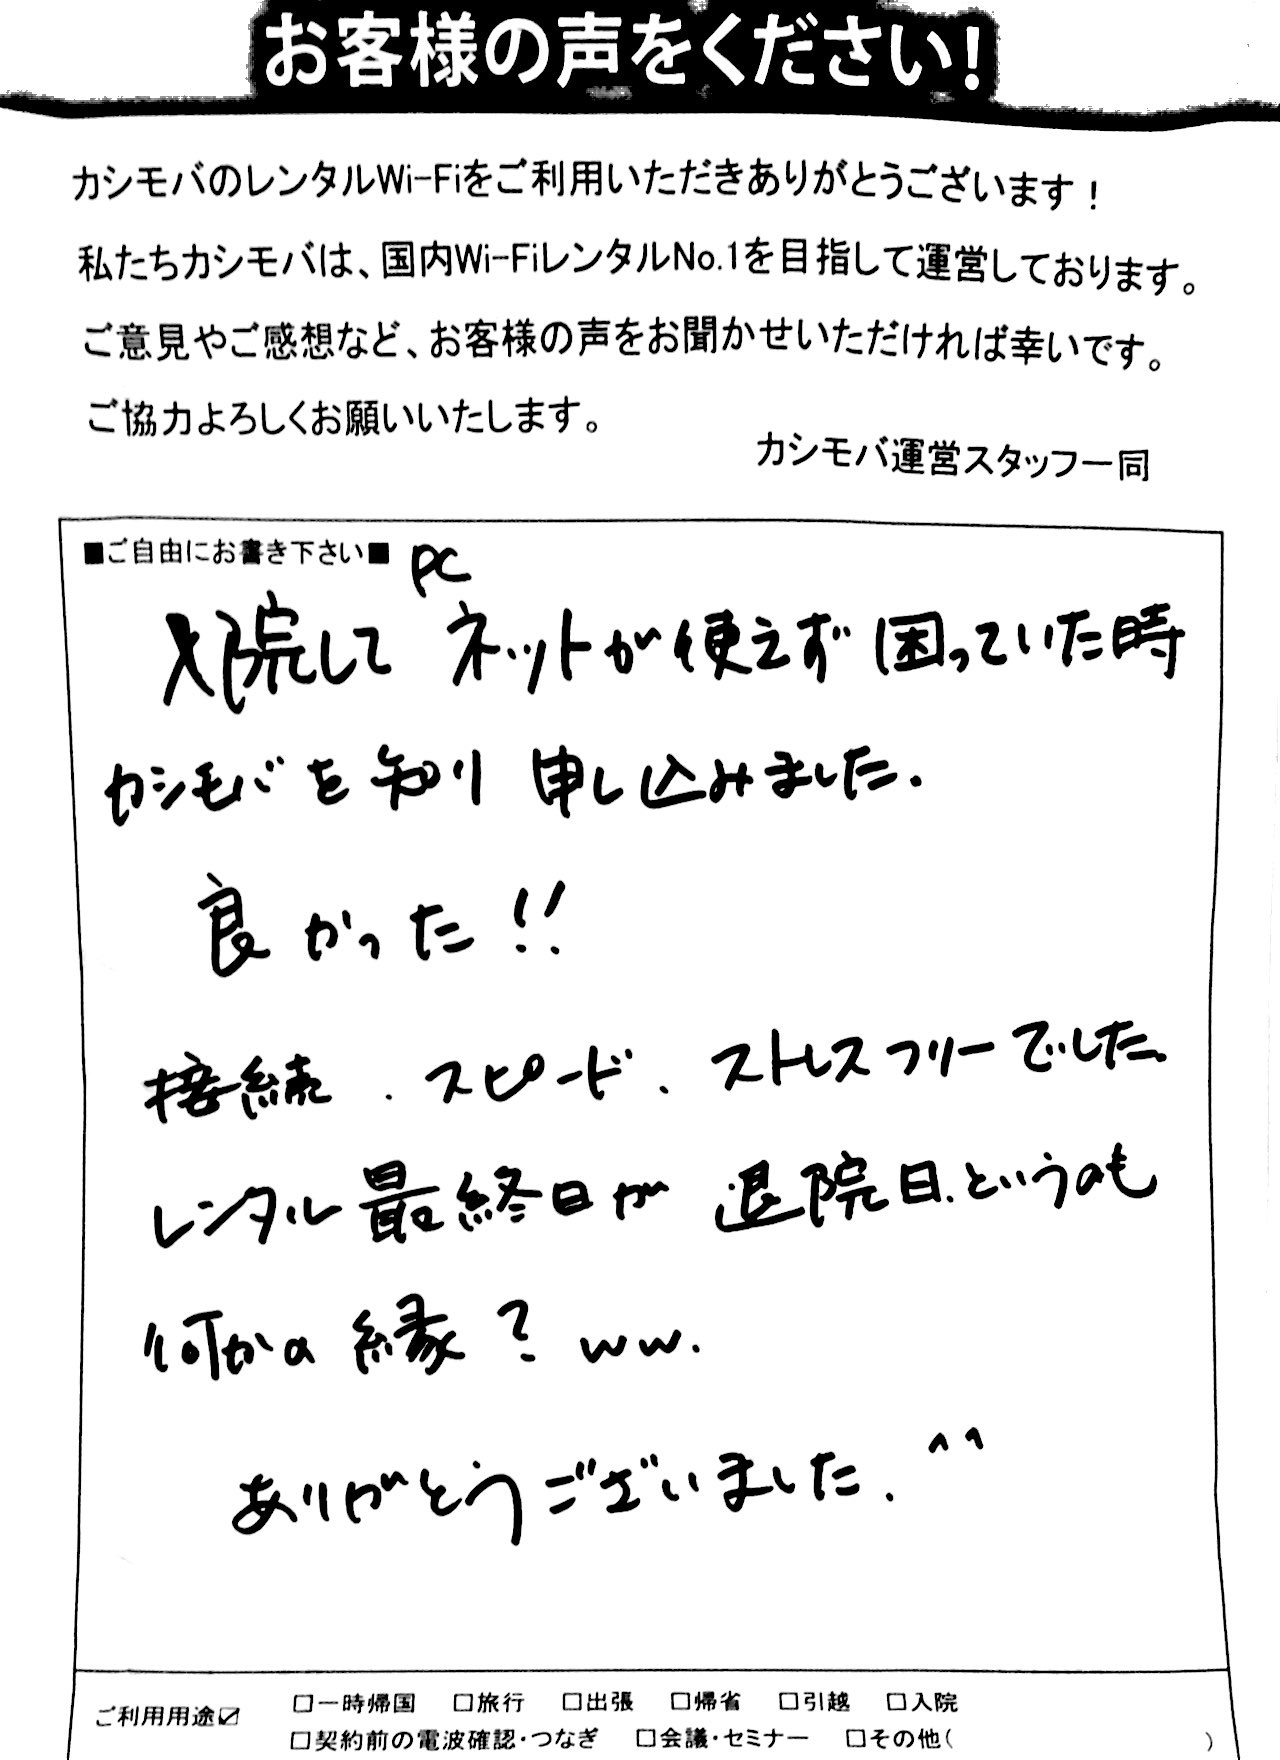 お客様の声をください!
カシモバのレンタルWi-Fiをご利用いただきありがとうございます!
私たちカシモバは、国内Wi-FiレンタルNo.1を目指して運営しております。
ご意見やご感想など、お客様の声をお聞かせいただければ幸いです。
ご協力よろしくお願いいたします。
カシモバ運営スタッフ一同
■ご自由にお書き下さい■
PC
入院して ネットが使えず困っていた時
カシモバを知り 申し込みました.
良かった!!
接続、スピード、ストレスフリーでした。
レンタル最終日が 退院日、というのも
何かの縁? ww.
ありがとうございました. ^^
ご利用用途☑ □一時帰国 □旅行 □出張 □帰省 □引越 □入院
□契約前の電波確認・つなぎ □会議・セミナー □その他( )